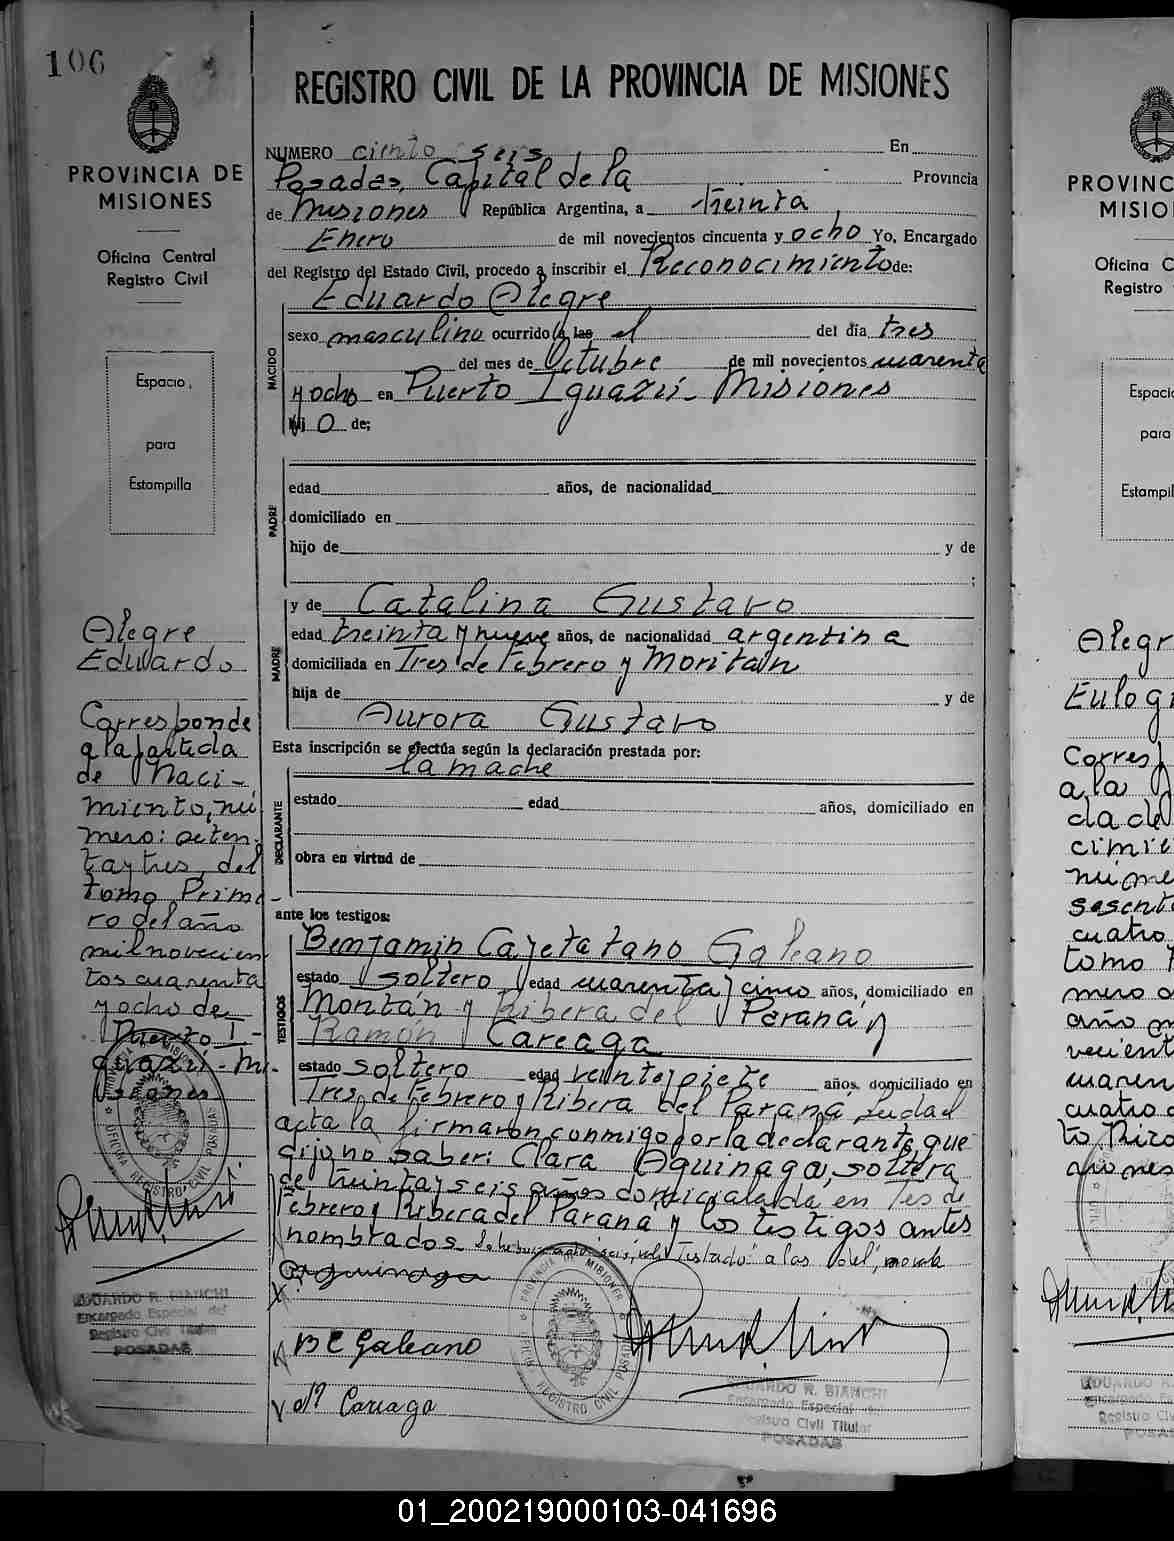 106
PROVINCIA DE
MISIONES
Oficina Central
Registro Civil
Espacio
para
Estampilla
Alegre
Eduardo
Corresponde
a la partida
de Naci-
miento, nú
mero: seten
ta y tres, del
tomo Prime
ro del año
mil novecien
tos cuarenta
y ocho de
Puerto I-
guazú - Mi-
siones
PROVINCIA DE MISIONES
OFICINA REGISTRO CIVIL POSADAS
EDUARDO R. BIANCHI
Encargado Especial del
Registro Civil Titular
POSADAS
REGISTRO CIVIL DE LA PROVINCIA DE MISIONES
NUMERO ciento seis En
Posadas, Capital de la Provincia
de Misiones República Argentina, a treinta
Enero de mil novecientos cincuenta y ocho Yo, Encargado
del Registro del Estado Civil, procedo a inscribir el Reconocimiento de:
Eduardo Alegre
NACIDO
sexo masculino ocurrido a las el del día tres
del mes de Octubre de mil novecientos cuarenta
y ocho en Puerto Iguazú - Misiones
O de;
PADRE
edad años, de nacionalidad
domiciliado en
hijo de y de
;
MADRE
y de Catalina Gustavo
edad treinta y nueve años, de nacionalidad argentina
domiciliada en Tres de Febrero y Moritan
hija de y de
Aurora Gustavo
Esta inscripción se efectúa según la declaración prestada por:
la madre
DECLARANTE
estado edad años, domiciliado en
obra en virtud de
ante los testigos:
TESTIGOS
Benjamin Cayetatano Galeano
estado soltero edad cuarenta y cinco años, domiciliado en
Montán y Ribera del Paraná y
Ramón Careaga
estado soltero edad veintisiete años, domiciliado en
Tres de Febrero y Ribera del Paraná, Leida el
acta la firmaron conmigo por la declarante, que
dijo no saber: Clara Aquinaga, soltera
de treinta y seis años domicialada en Tes de
Febrero y Ribera del Paraná y los testigos antes
nombrados. vale Testado: a las del,
B C Galeano
R Careaga
PROVINCIA DE MISIONES
OFICINA REGISTRO CIVIL POSADAS
EDUARDO R. BIANCHI
Encargado Especial del
Registro Civil Titular
POSADAS
PROVINC
MISIO
Oficina C
Registro
Espacio
para
Estampil
Alegr
Eulog
Corres
a la
da de
cimie
núme
sesenta
cuatro
tomo
mero
año m
vecient
cuaren
cuatro
EDUARDO R.
Encargado Es
Registro Civ
POSA
01_200219000103-041696